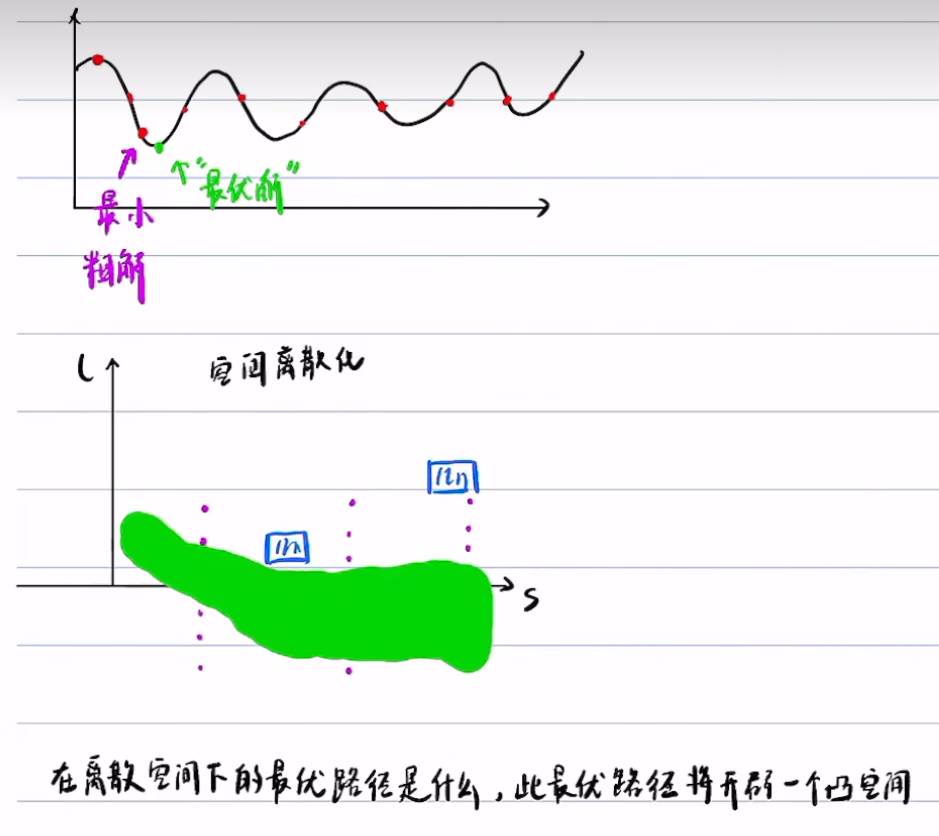 "最优解"
最小
粗解
l
空间离散化
s
在离散空间下的最优路径是什么，此最优路径将开辟一个凸空间